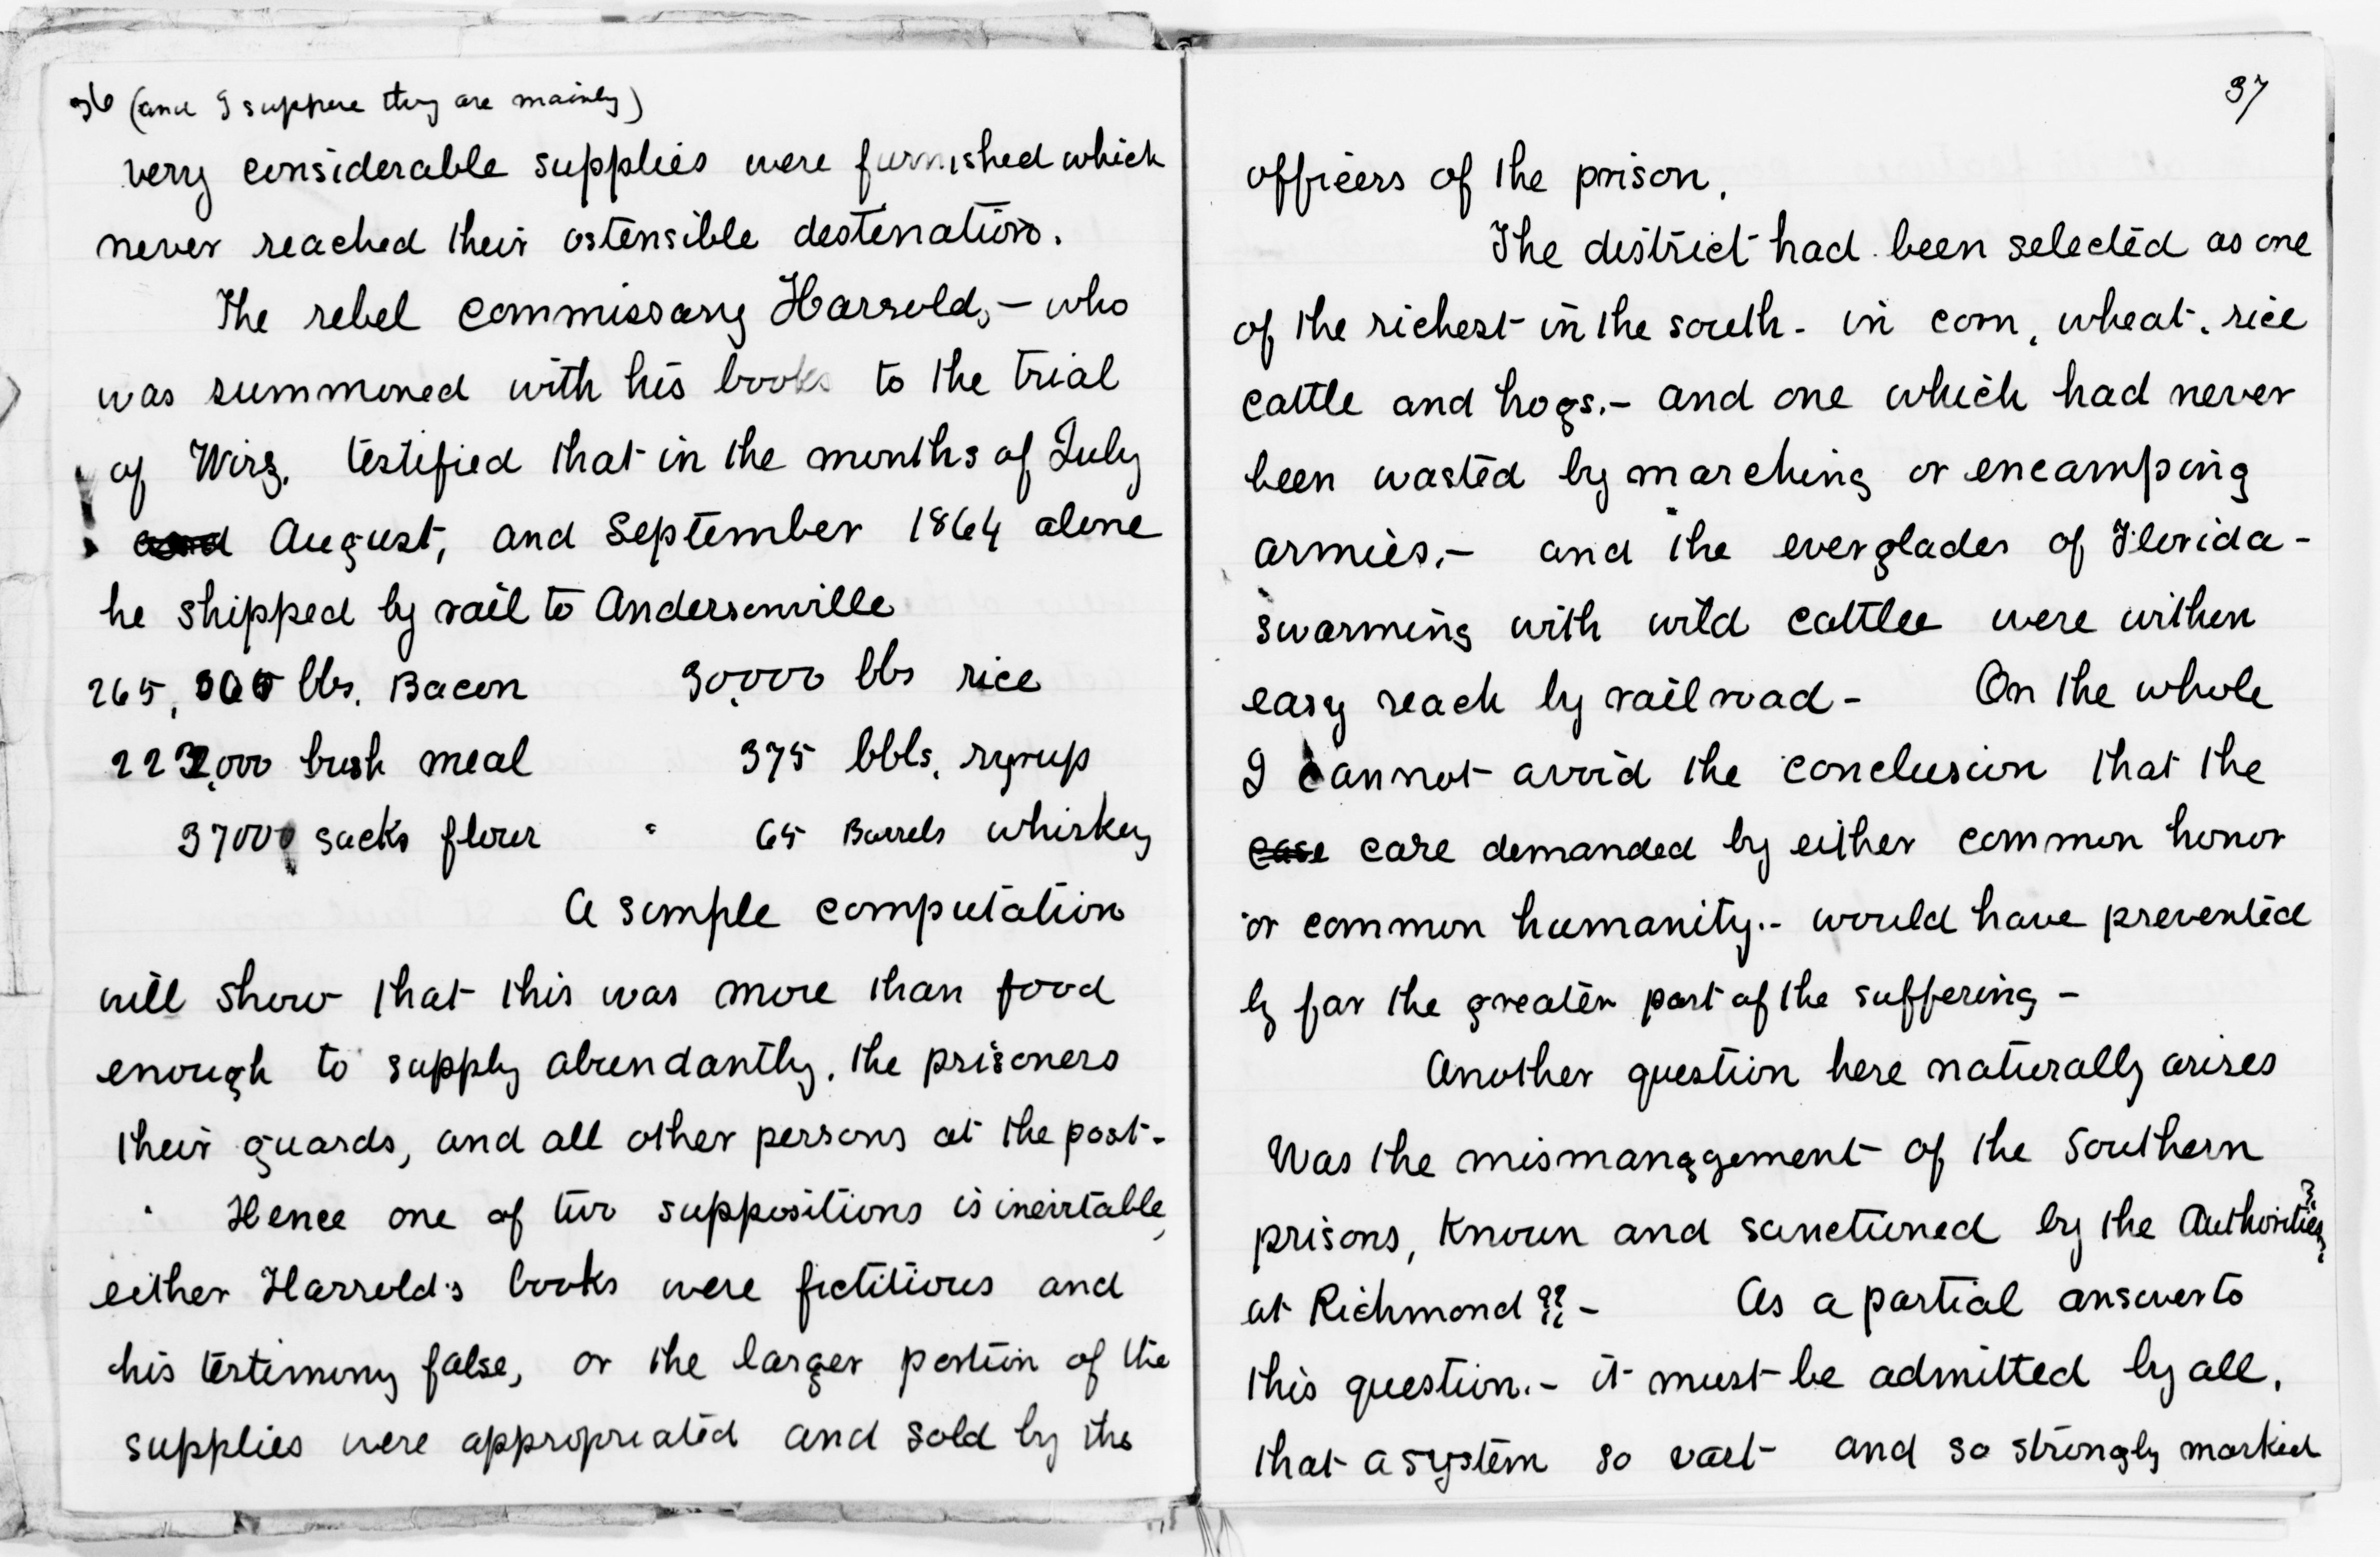 36 (and I suppose they are mainly)
very considerable supplies were furnished which
never reached their ostensible destination.
The rebel commissary Harrold, – who
was summoned with his books to the trial
of Wirz. testified that in the months of July
and August, and September 1864 alone
he shipped by rail to Andersonville
265, 000 lbs. Bacon 30,000 lbs rice
222,000 bush meal 375 bbls. syrup
37000 sacks flour 65 Barrels whiskey
A simple computation
will show that this was more than food
enough to supply abundantly. the prisoners
their guards, and all other persons at the post-
Hence one of two suppositions is inevitable,
either Harrold's books were fictitious and
his testimony false, or the larger portion of the
supplies were appropriated and sold by the
37
officers of the prison.
The district had been selected as one
of the richest in the south - in corn, wheat, rice
cattle and hogs. – and one which had never
been wasted by marching or encamping
armies. – and the everglades of Florida –
swarming with wild cattle were within
easy reach by railroad – On the whole
I cannot avoid the conclusion that the
case care demanded by either common honor
or common humanity. – would have prevented
by far the greater part of the suffering –
Another question here naturally arises
Was the mismanagement of the Southern
prisons, known and sanctioned by the Authorities
at Richmond ?? – As a partial answer to
this question. – it must be admitted by all,
that a system so vast and so strongly marked